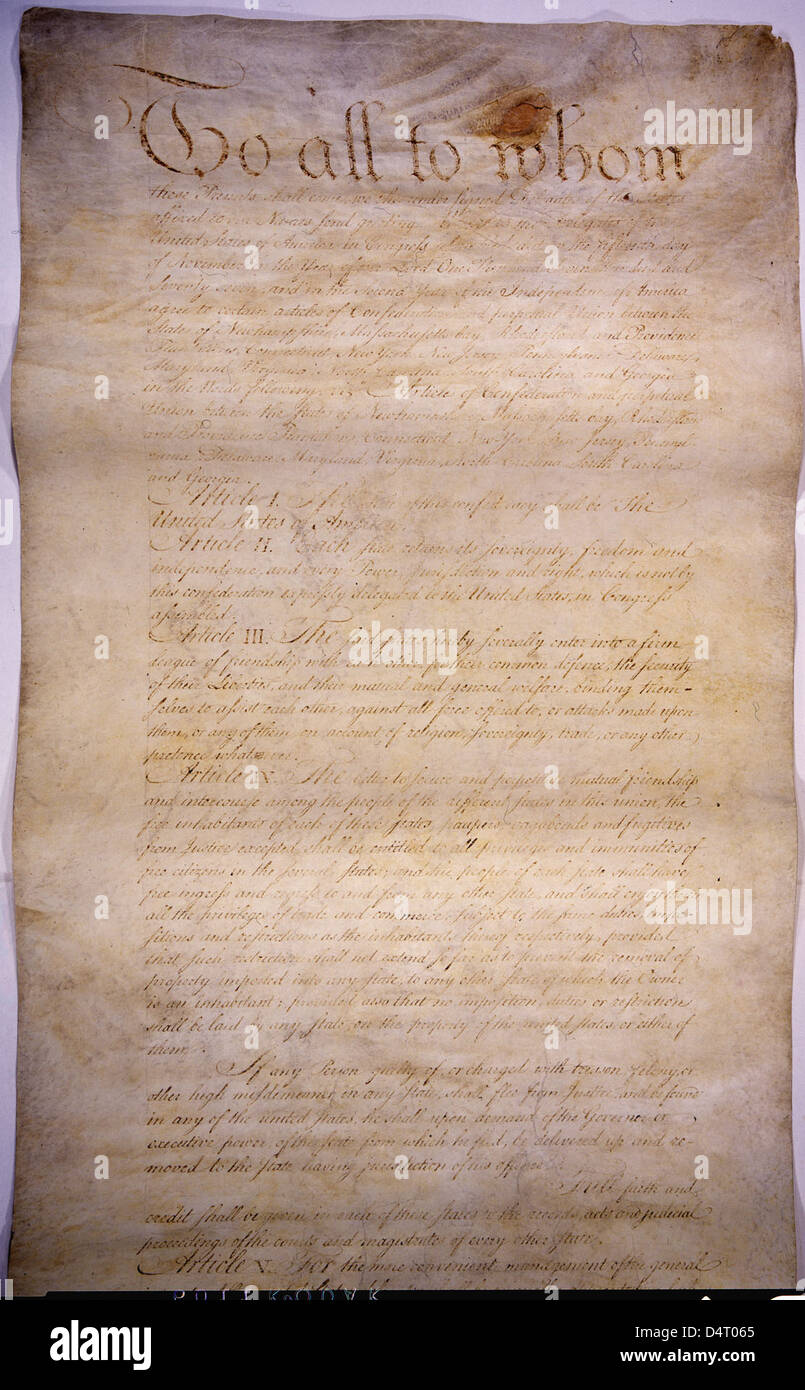 To all to whom
these Presents shall come, we the under signed Delegates of the States
affixed to our Names send greeting. Whereas the Delegates of the
United States of America in Congress assembled did on the fifteenth day
of November in the Year of our Lord One Thousand Seven Hundred and
Seventy seven, and in the Second Year of our Independence of America
agree to certain articles of Confederation and perpetual Union between the
States of Newhampshire, Massachusetts-bay, Rhodeisland and Providence
Plantations, Connecticut, New York, New Jersey, Pennsylvania, Delaware,
Maryland, Virginia, North-Carolina, South-Carolina and Georgia
in the Words following, viz. Articles of Confederation and perpetual
Union between the States of Newhampshire, Massachusetts-bay, Rhodeisland
and Providence Plantations, Connecticut, New-York, New-Jersey, Pennsyl-
vania, Delaware, Maryland, Virginia, North-Carolina, South-Carolina
and Georgia.
Article I. The Stile of this confederacy shall be "The
United States of America."
Article II. Each state retains its sovereignty, freedom and
independence, and every Power, Jurisdiction and right, which is not by
this confederation expressly delegated to the United States, in Congress
assembled.
Article III. The said states hereby severally enter into a firm
league of friendship with each other, for their common defence, the security
of their Liberties, and their mutual and general welfare, binding them-
selves to assist each other, against all force offered to, or attacks made upon
them, or any of them, on account of religion, sovereignty, trade, or any other
pretence whatever.
Article IV. The better to secure and perpetuate mutual friendship
and intercourse among the people of the different states in this union, the
free inhabitants of each of these states, paupers, vagabonds and fugitives
from Justice excepted, shall be entitled to all privileges and immunities of
free citizens in the several states; and the people of each state shall have
free ingress and regress to and from any other state, and shall enjoy therein
all the privileges of trade and commerce, subject to the same duties, impo-
sitions and restrictions as the inhabitants thereof respectively, provided
that such restriction shall not extend so far as to prevent the removal of
property imported into any state, to any other state of which the Owner
is an inhabitant; provided also that no imposition, duties or restriction
shall be laid by any state, on the property of the united states, or either of
them.
If any Person guilty of, or charged with treason, felony, or
other high misdemeanor in any state, shall flee from Justice, and be found
in any of the united states, he shall upon demand of the Governor or
executive power, of the state from which he fled, be delivered up and re-
moved to the state having jurisdiction of his offence.
Full faith and
credit shall be given in each of these states to the records, acts and judicial
proceedings of the courts and magistrates of every other state.
Article V. For the more convenient management of the general
alamy
Image ID: D4T065
www.alamy.com